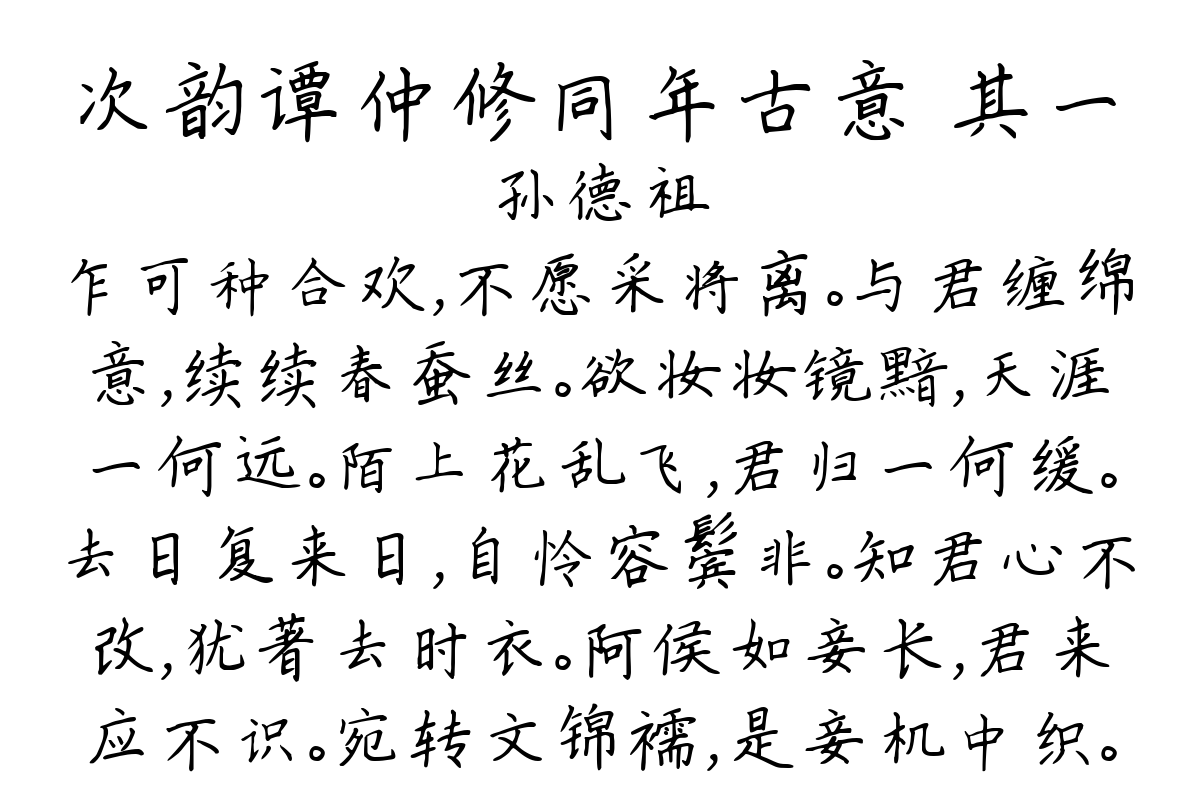 次韵谭仲修同年古意 其一
孙德祖
乍可种合欢,不愿采将离。与君缠绵
意,续续春蚕丝。欲妆妆镜黯,天涯
一何远。陌上花乱飞,君归一何缓。
去日复来日,自怜容鬓非。知君心不
改,犹著去时衣。阿侯如妾长,君来
应不识。宛转文锦襦,是妾机中织。